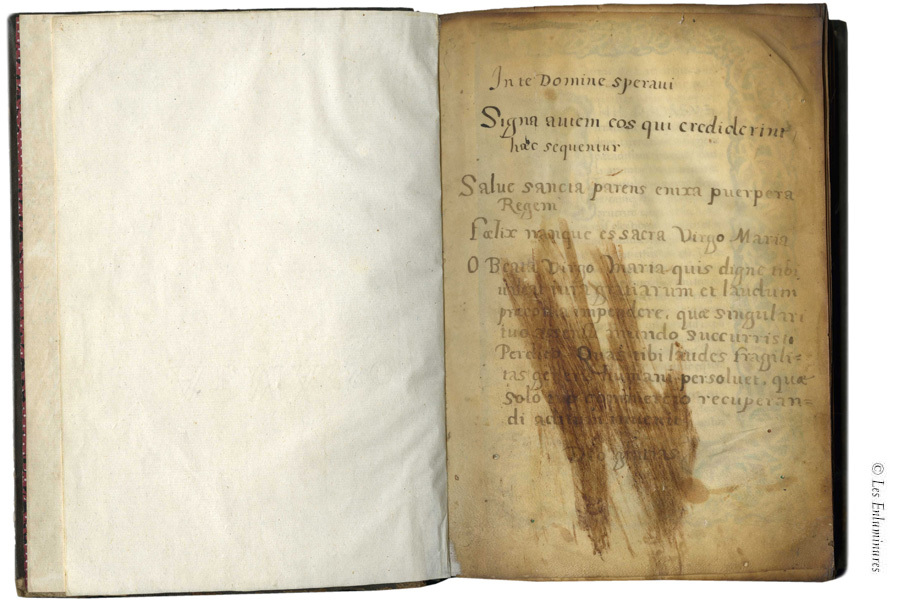 In te Domine speraui
Signa autem eos qui crediderint
hæc sequentur
Salue sancta parens enixa puerpera
Regem
Fœlix nanque es sacra Virgo Maria
O Beata Virgo Maria quis digne tibi
gratiarum et laudum
impendere, quæ singulari
tuo mundo succurristi
Perdito Quas tibi laudes fragili=
tas humani persoluet, quæ
solo tuo commercio recuperan=
di
Deo gratias
© Les Enluminures